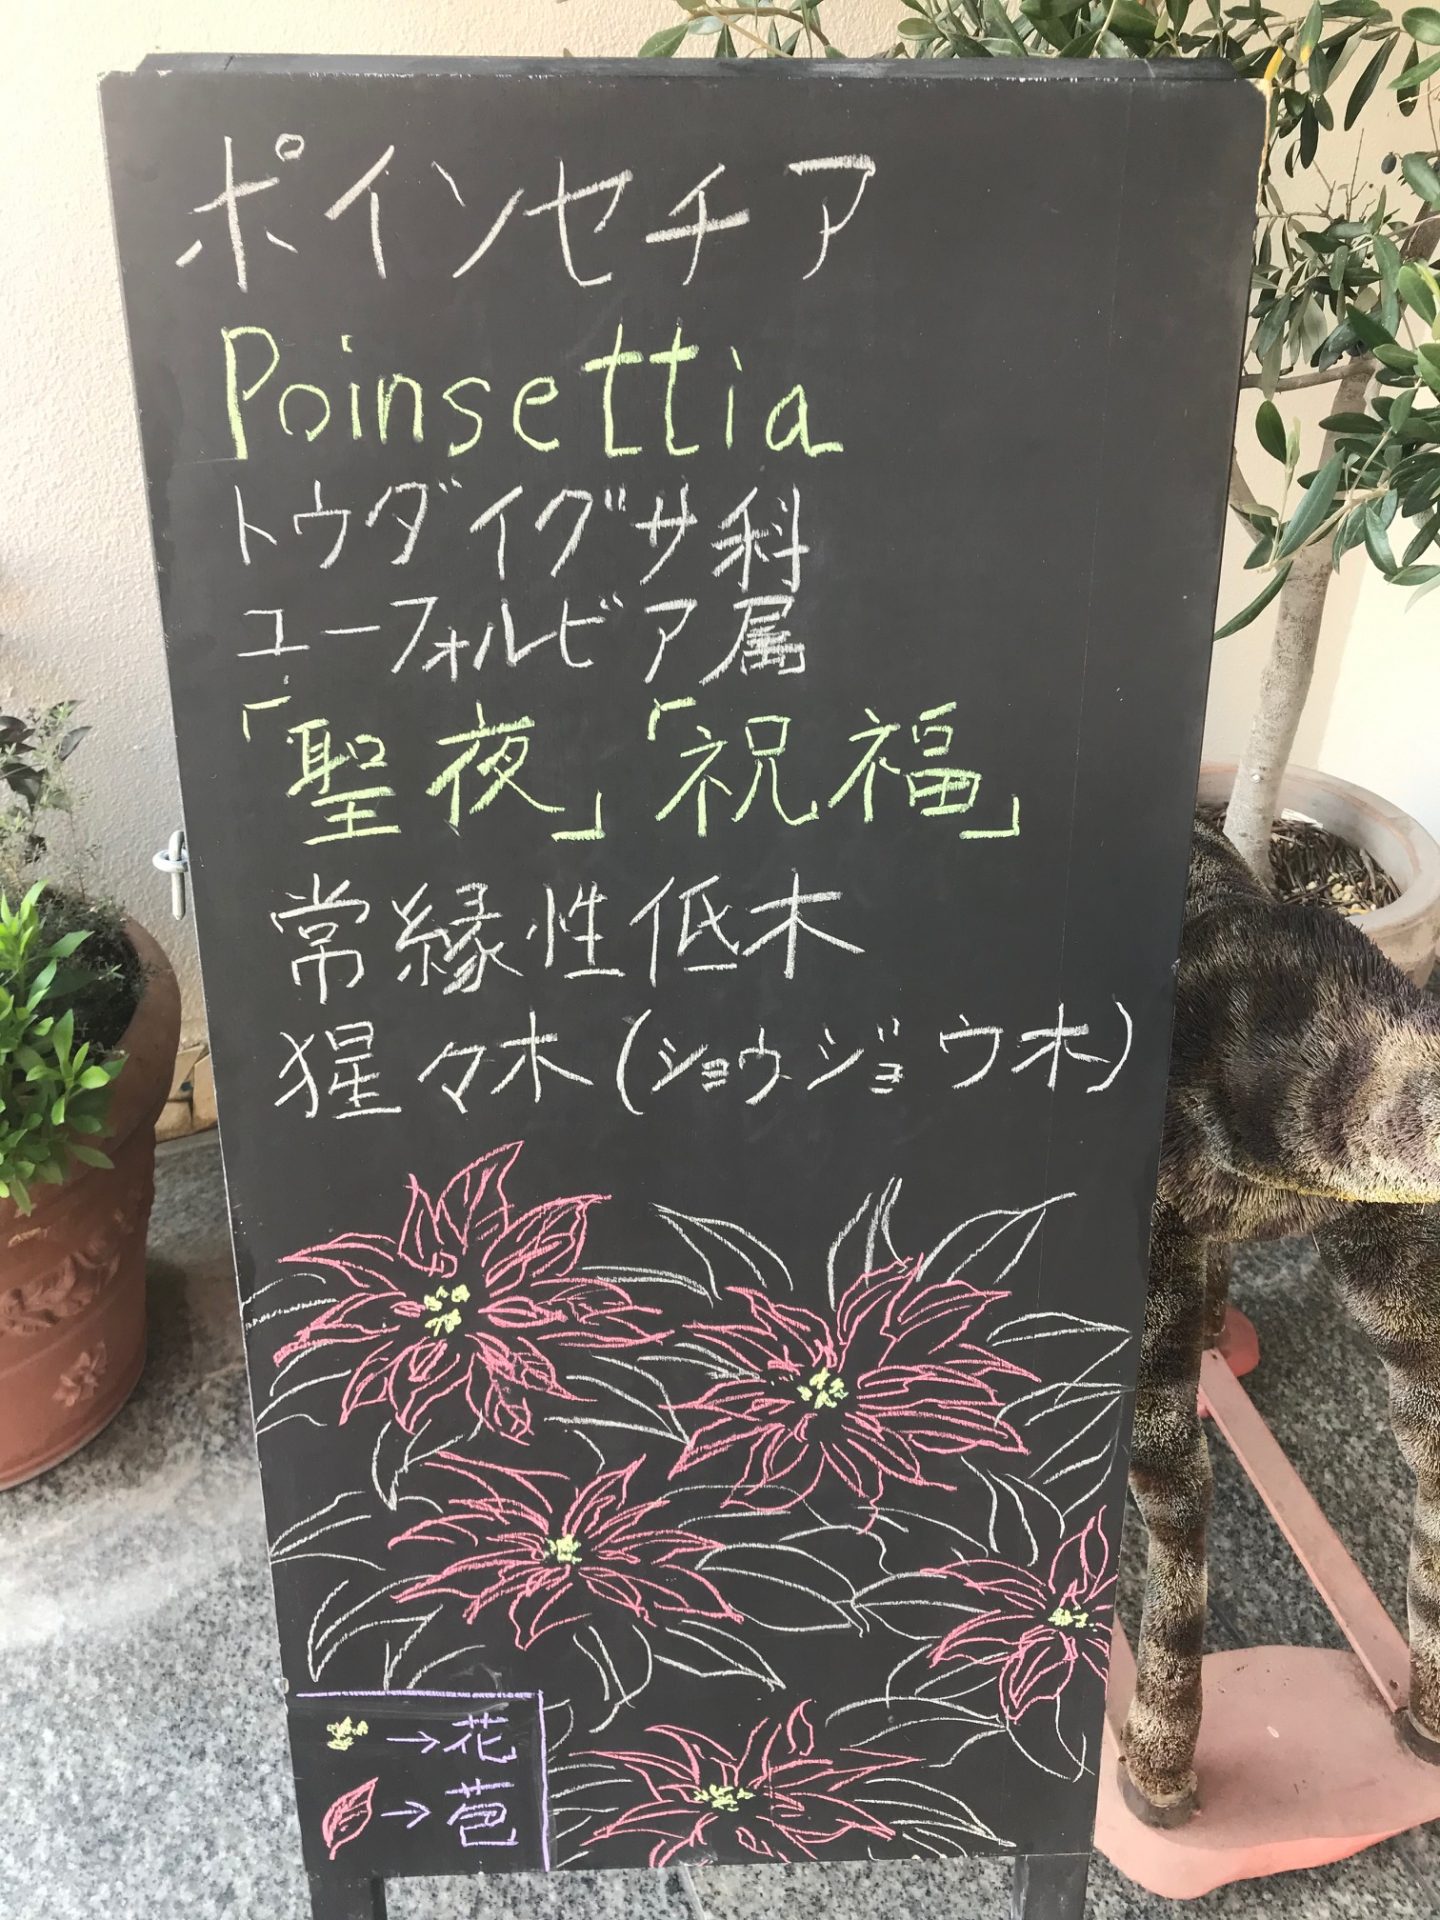 ポインセチア
Poinsettia
トウダイグサ科
ユーフォルビア属
「聖夜」「祝福」
常縁性低木
猩々木(ショウジョウ木)
→花
→苞